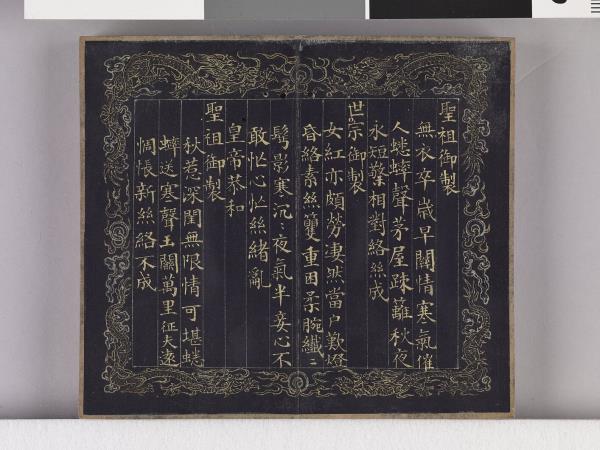 聖祖御製
無衣卒歲早關情寒氣催
人蟋蟀聲茅屋疎籬秋夜
永短檠相對絡絲成
世宗御製
女紅亦頗勞凄然當户歎燈
昏絡素絲籰重困柔腕纖〻
髩影寒沉〻夜氣半妾心不
敢忙心忙絲緒亂
皇帝恭和
聖祖御製
秋惹深閨無限情可堪蟋
蟀送寒聲玉關萬里征夫遠
惆悵新絲絡不成